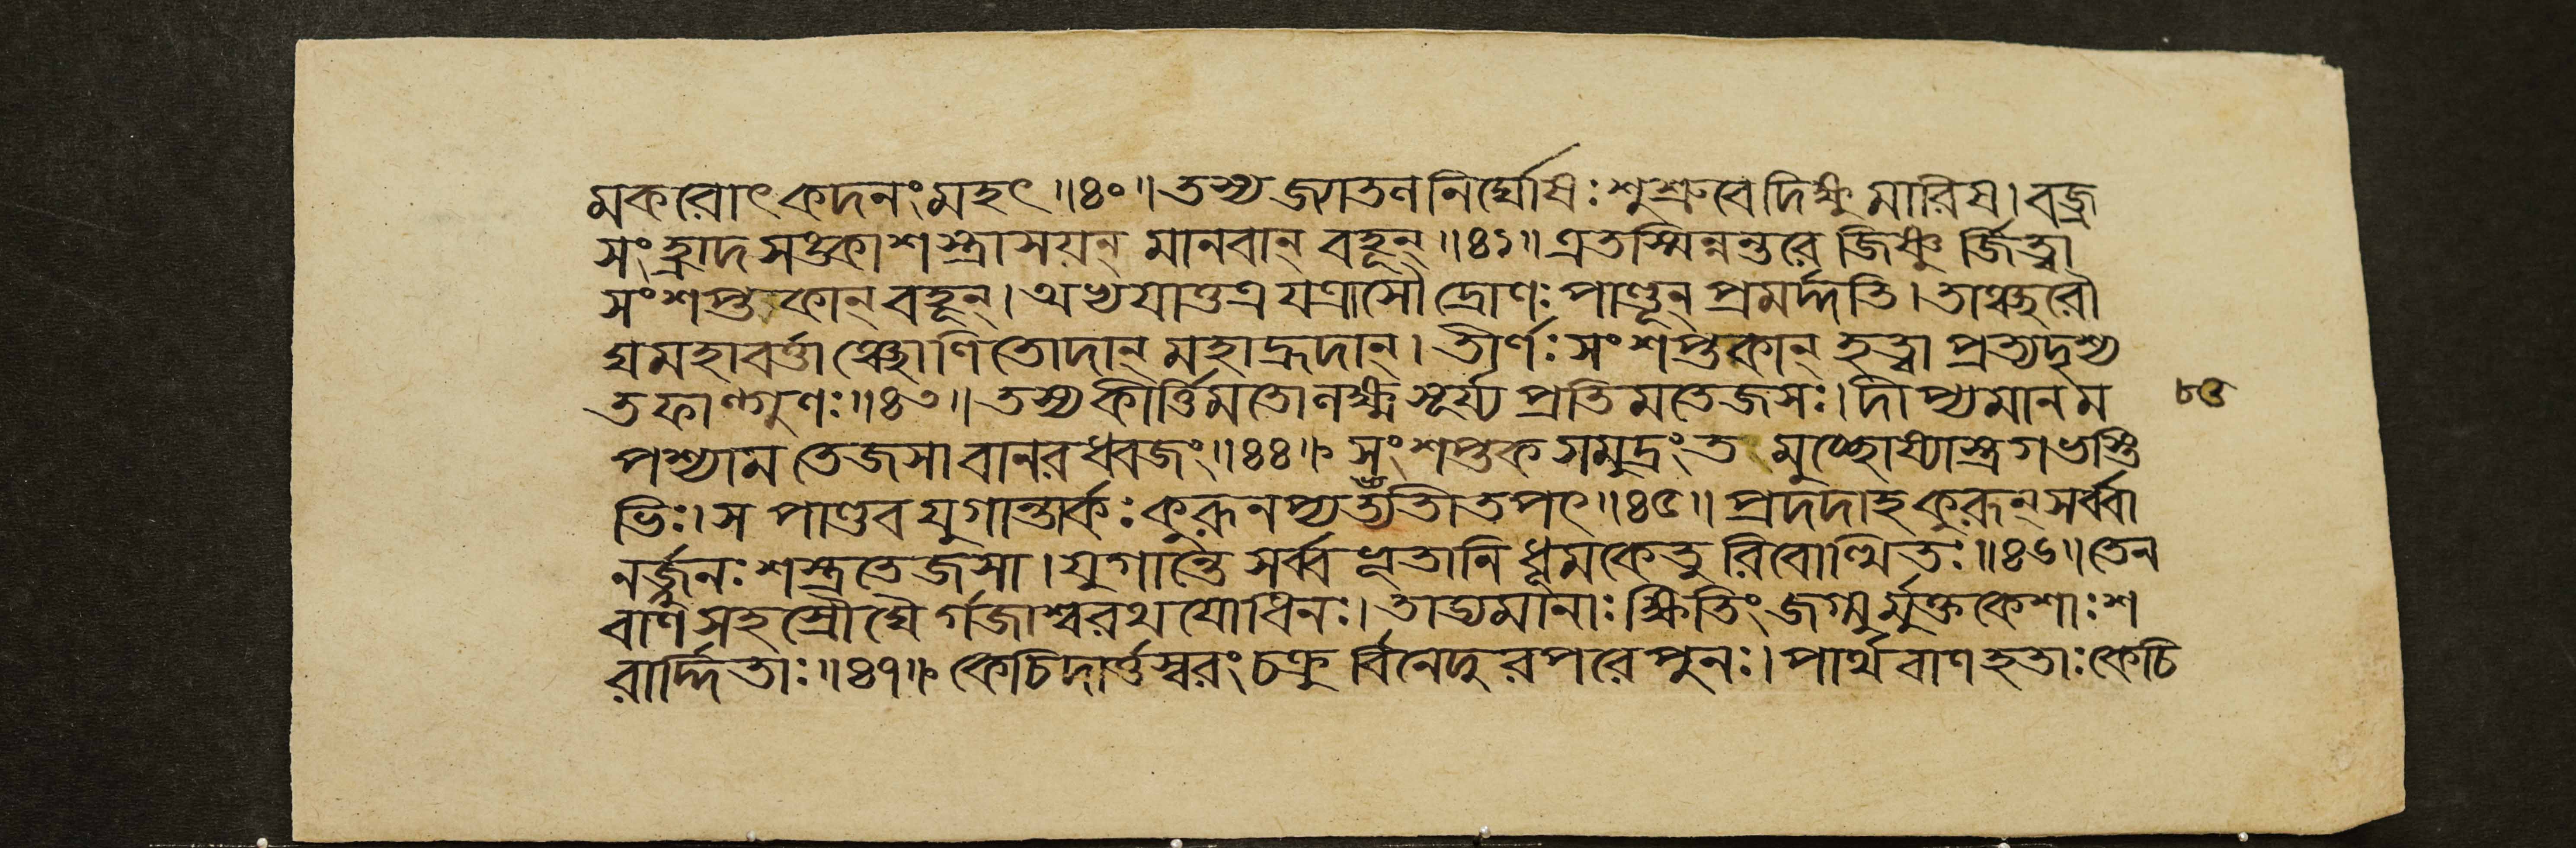 মকরোৎ কদনং মহৎ ॥ ৪০ ॥ তস্য জ্যাতলনির্ঘোষঃ শুশ্রুবে দিক্ষু মারিষ। বজ্র
সংহ্রাদসঙ্কাশস্ত্রাসয়ন্ মানবান্ বহূন্ ॥ ৪১ ॥ এতস্মিন্নন্তরে জিষ্ণুর্জিত্বা
সংশপ্তকান্ বহূন্। অভ্যযাত্তত্র যত্রাসৌ দ্রোণঃ পাণ্ডূন্ প্রমর্দ্দতি। তাঞ্ছরৌ
ঘমহাবর্ত্তাঞ্ছোণিতোদান্ মহাহ্রদান্। তীর্ণঃ সংশপ্তকান্ হত্বা প্রত্যদৃশ্য
ত ফাল্গুনঃ ॥ ৪৩ ॥ তস্য কীর্ত্তিমতো লক্ষ্ম সূর্য্যপ্রতিমতেজসঃ। দীপ্যমানম
পশ্যাম তেজসা বানরধ্বজং ॥ ৪৪ ॥ সংশপ্তকসমুদ্রং তমুচ্ছোষ্যাস্ত্রগভস্তি
ভিঃ। স পাণ্ডবযুগান্তার্কঃ কুরূনপ্যভ্যতীতপৎ ॥ ৪৫ ॥ প্রদদাহ কুরূন্ সর্ব্বা
নর্জ্জুনঃ শস্ত্রতেজসা। যুগান্তে সর্ব্বভূতানি ধূমকেতুরিবোত্থিতঃ ॥ ৪৬ ॥ তেন
বাণসহস্রৌঘৈর্গজাশ্বরথযোধিনঃ। তাড্যমানাঃ ক্ষিতিং জগ্মুর্মুক্তকেশাঃ শ
রার্দ্দিতাঃ ॥ ৪৭ ॥ কেচিদার্ত্তস্বরং চক্রুর্বিনেদুরপরে পুনঃ। পার্থবাণহতাঃ কেচি